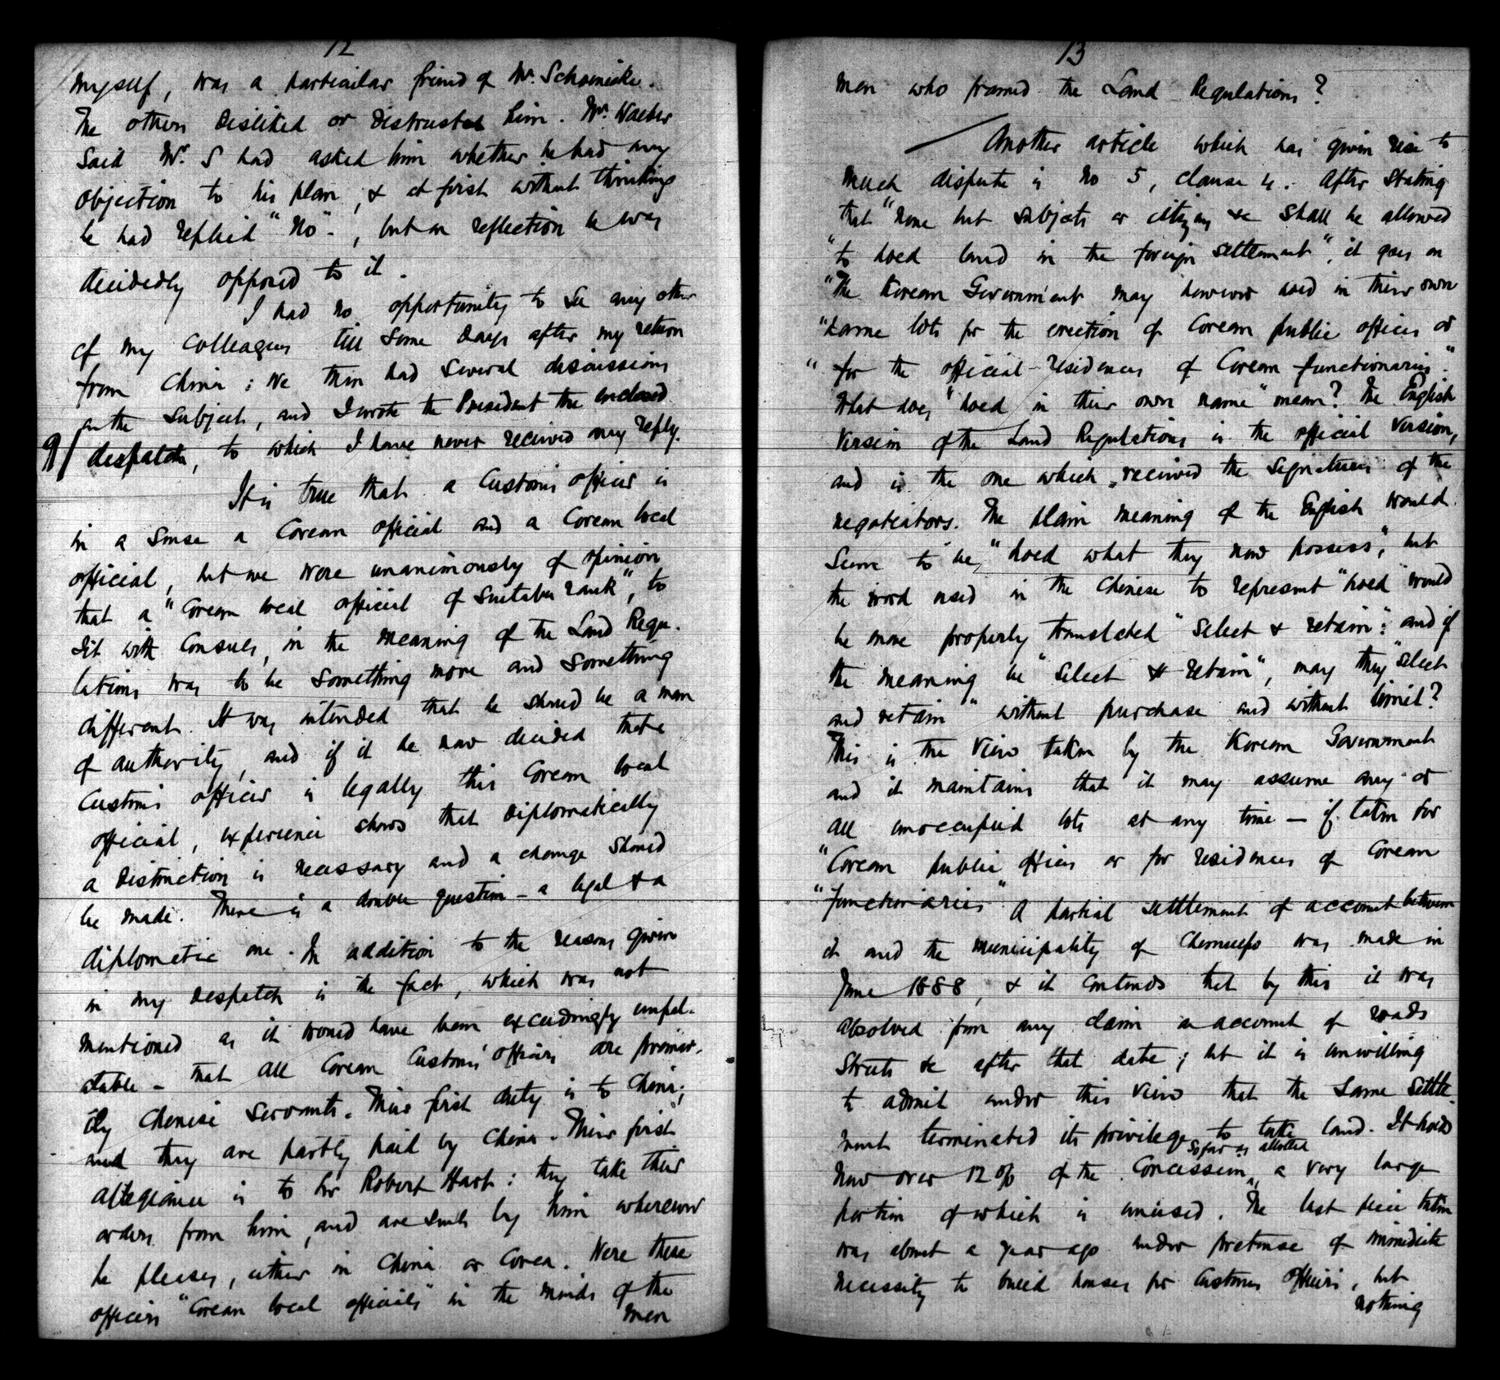 12
myself, was a particular friend of Mr. Schoenicke.
The others disliked or distrusted him. Mr. Waeber
said Mr. S had asked him whether he had any
objection to his plan, & at first without thinking
he had replied "No", but on reflection he was
decidedly opposed to it.
I had no opportunity to see any other
of my colleagues till some days after my return
from China: we then had several discussions
on the subject, and I wrote the President the enclosed
9/ despatch, to which I have never received any reply.
It is true that a Customs officer is
in a sense a Corean official and a Corean local
official, but we were unanimously of opinion
that a "Corean local official of suitable rank", to
sit with Consuls, in the meaning of the Land Regu-
lations was to be something more and something
different. It was intended that he should be a man
of authority, and if it be now decided that a
Customs officer is legally this Corean local
official, experience shows that diplomatically
a distinction is necessary and a change should
be made. There is a double question - a legal & a
diplomatic one. In addition to the reasons given
in my despatch is the fact, which was not
mentioned as it would have been exceedingly unpal-
atable - that all Corean Customs' officers are primar-
ily Chinese servants. Their first duty is to China;
and they are partly paid by China. Their first
allegiance is to Sir Robert Hart: they take their
orders from him, and are sent by him wherever
he pleases, either in China or Corea. Were these
officers "Corean local officials" in the minds of the
men
13
men who framed the Land Regulations?
Another article which has given rise to
much dispute is No 5, clause 4. After stating
that "none but subjects or citizens &c shall be allowed
"to hold land in the foreign settlement", it goes on
"The Korean Government may however hold in their own
"name lots for the erection of Corean public offices or
"for the official residences of Corean functionaries."
What does "hold in their own name" mean? The English
version of the Land Regulations is the official version,
and is the one which received the signatures of the
negotiators. The plain meaning of the English would
seem to be, "hold what they now possess", but
the word used in the Chinese to represent "hold" would
be more properly translated "select & retain": and if
the meaning be "select & retain", may they "select
and retain" without purchase and without limit?
This is the view taken by the Korean Government
and it maintains that it may assume any or
all unoccupied lots at any time - if taken for
"Corean public offices or for residences of Corean
"functionaries" A partial settlement of account between
it and the municipality of Chemulpo was made in
June 1888, & it contends that by this it was
absolved from any claim on account of roads
streets &c after that date; but it is unwilling
to admit under this view that the same settle-
ment terminated its privilege to take land. It holds
now over 12 % of the Concession, so far as allotted a very large
portion of which is unused. The last piece taken
was about a year ago under pretense of immediate
necessity to build houses for Customs officers, but
nothing